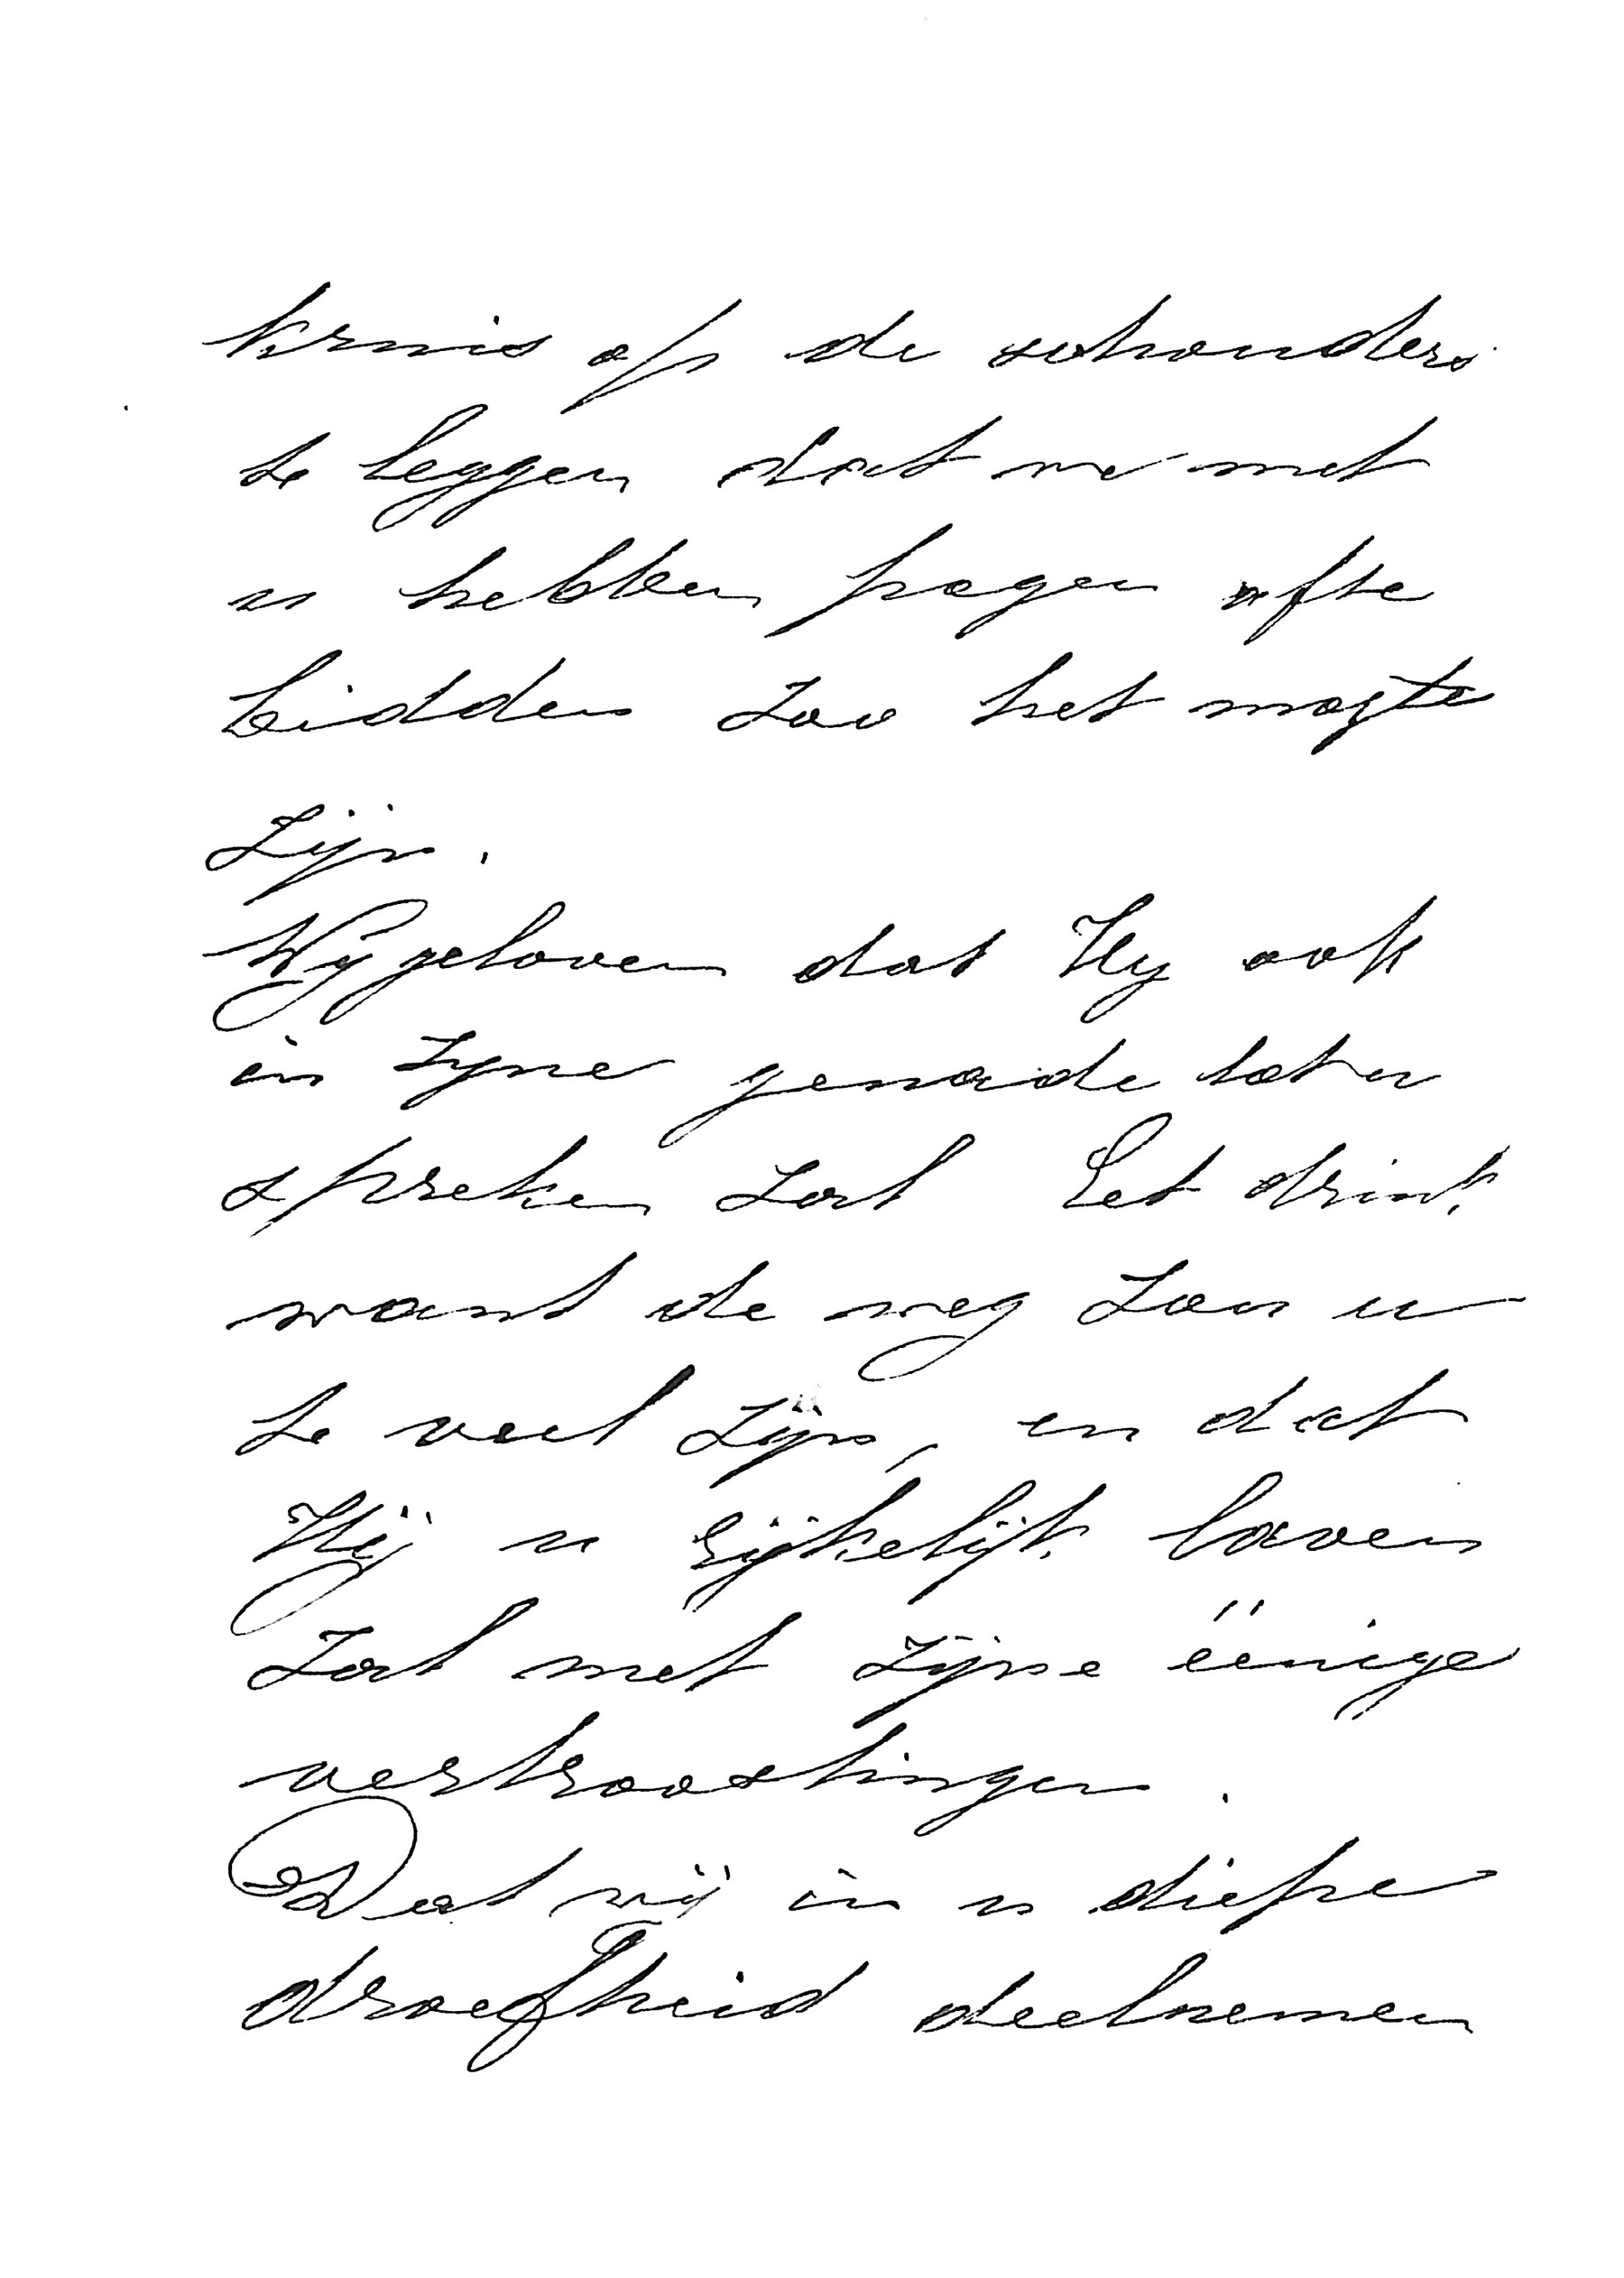 kruis op de schouders
te leggen dat we met
u hebben pogen af te
bidden zoo het mogte
zijn.
Wij geloven dat Hij ook
in zyne genaade tot u
spreken zal Eet drink,
want de weg zou u
te veel zijn, en dat
Hij u rijkelijk laven
zal met zijne éénige
vertroostingen.
Dat wij in u diepe
droefheid deelnemen